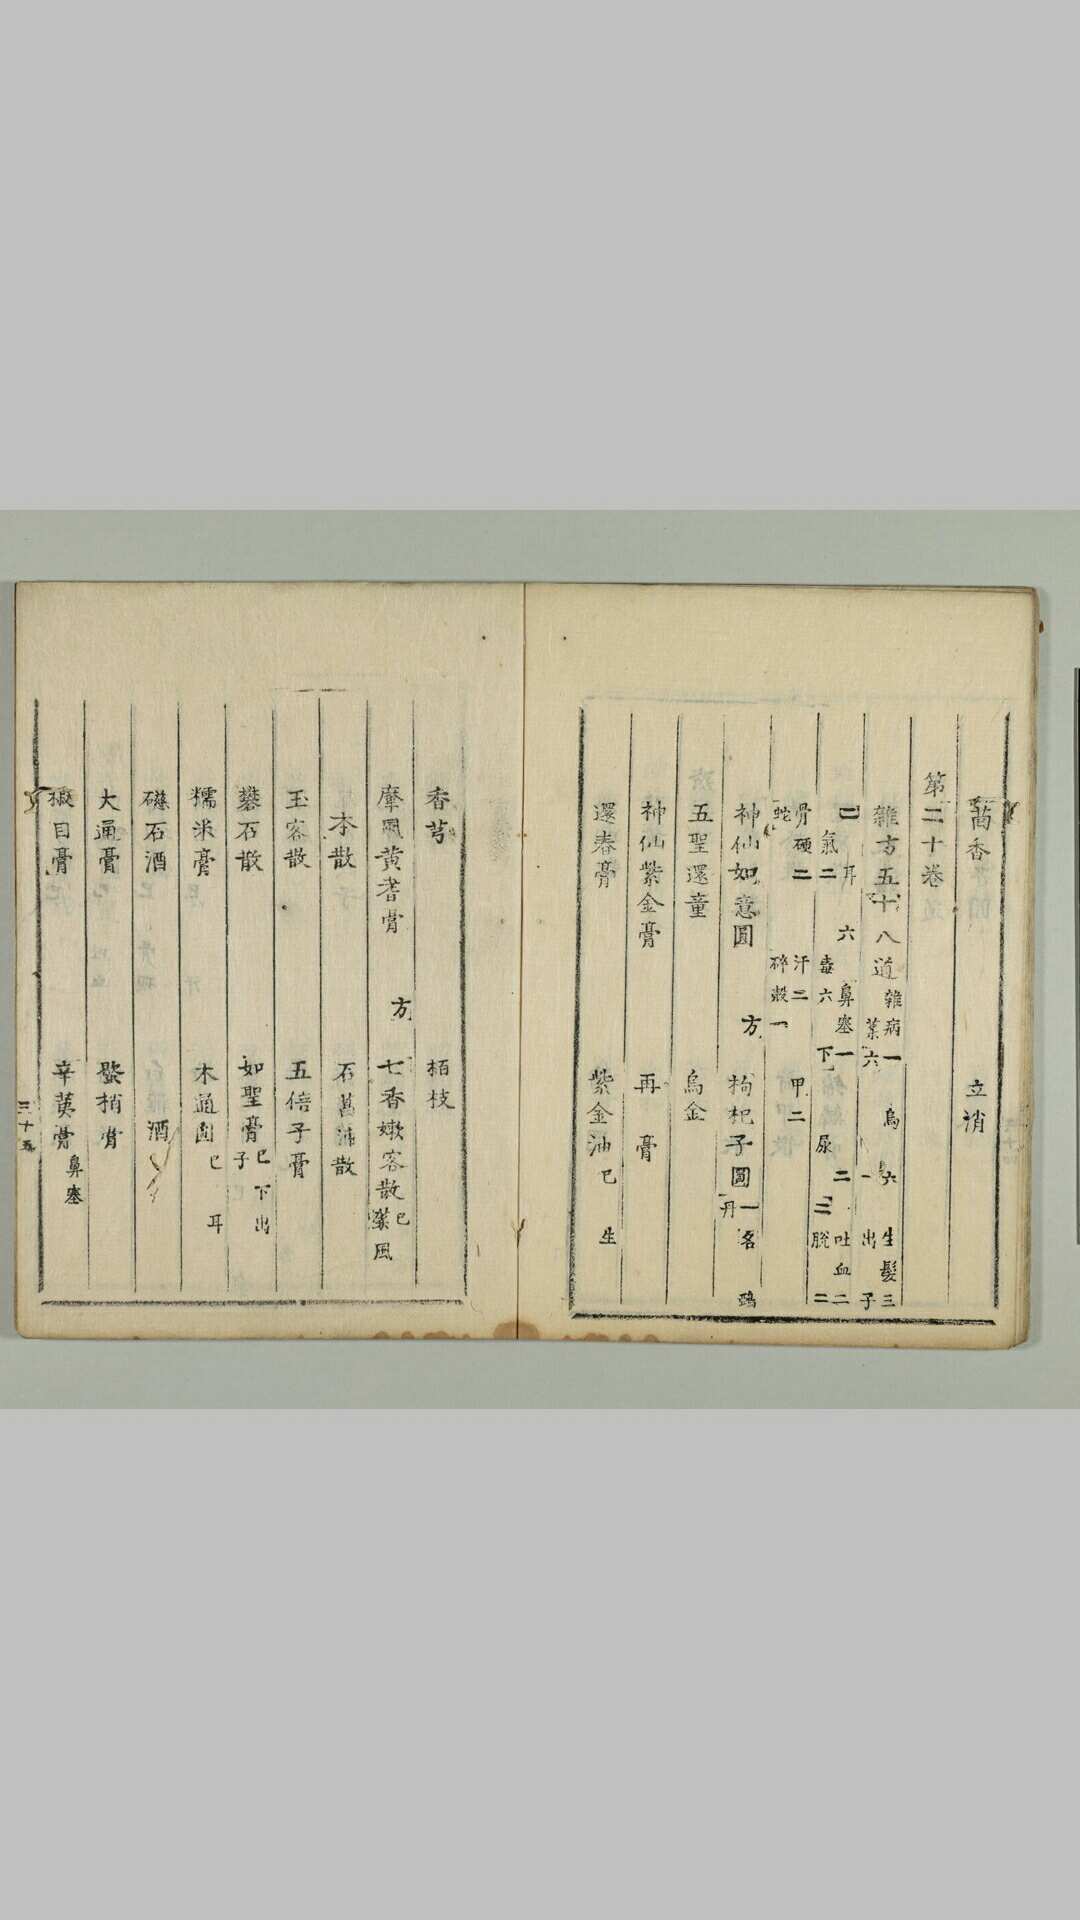 茴香 立消
第二十卷
雜方五十八道 雜病一 烏 六 生髮三
葉六 一 出子
耳 六 鼻塞一 二 吐血二
氣二 毒六 下 尿 三 脫二
骨硬二 汗二 甲二
蛇 碎殼一
神仙如意圓 方 枸杞子圓 一名 丹
五聖還童 烏金
神仙紫金膏 再 膏
還春膏 紫金油 已 生
香芎 栢枝
摩風黃耆膏 方 七香嫩容散 已 風
本散 石菖蒲散
玉容散 五倍子膏
礬石散 如聖膏 已 下出子
糯米膏 木通圓 已 耳
磁石酒 酒
大通膏 膏
椒目膏 辛荑膏 鼻塞
三十五